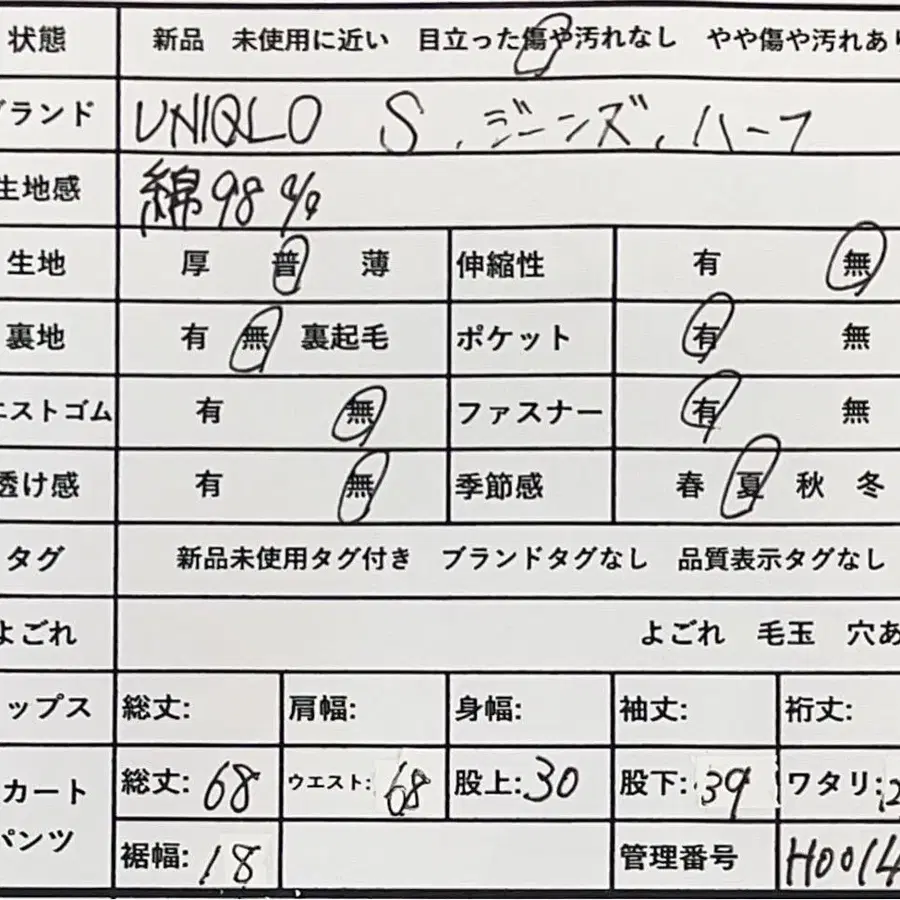 状態 新品 未使用に近い 目立った傷や汚れなし やや傷や汚れあり
ブランド UNIQLO S、ジーンズ、ハーフ
生地感 綿98%
生地 厚 普 薄 伸縮性 有 無
裏地 有 無 裏起毛 ポケット 有 無
エストゴム 有 無 ファスナー 有 無
透け感 有 無 季節感 春 夏 秋 冬
タグ 新品未使用タグ付き ブランドタグなし 品質表示タグなし
よごれ よごれ 毛玉 穴あ
ップス 総丈: 肩幅: 身幅: 袖丈: 裄丈:
カート 総丈: 68 ウエスト: 68 股上: 30 股下: 39 ワタリ: 2
パンツ 裾幅: 18 管理番号 H0014